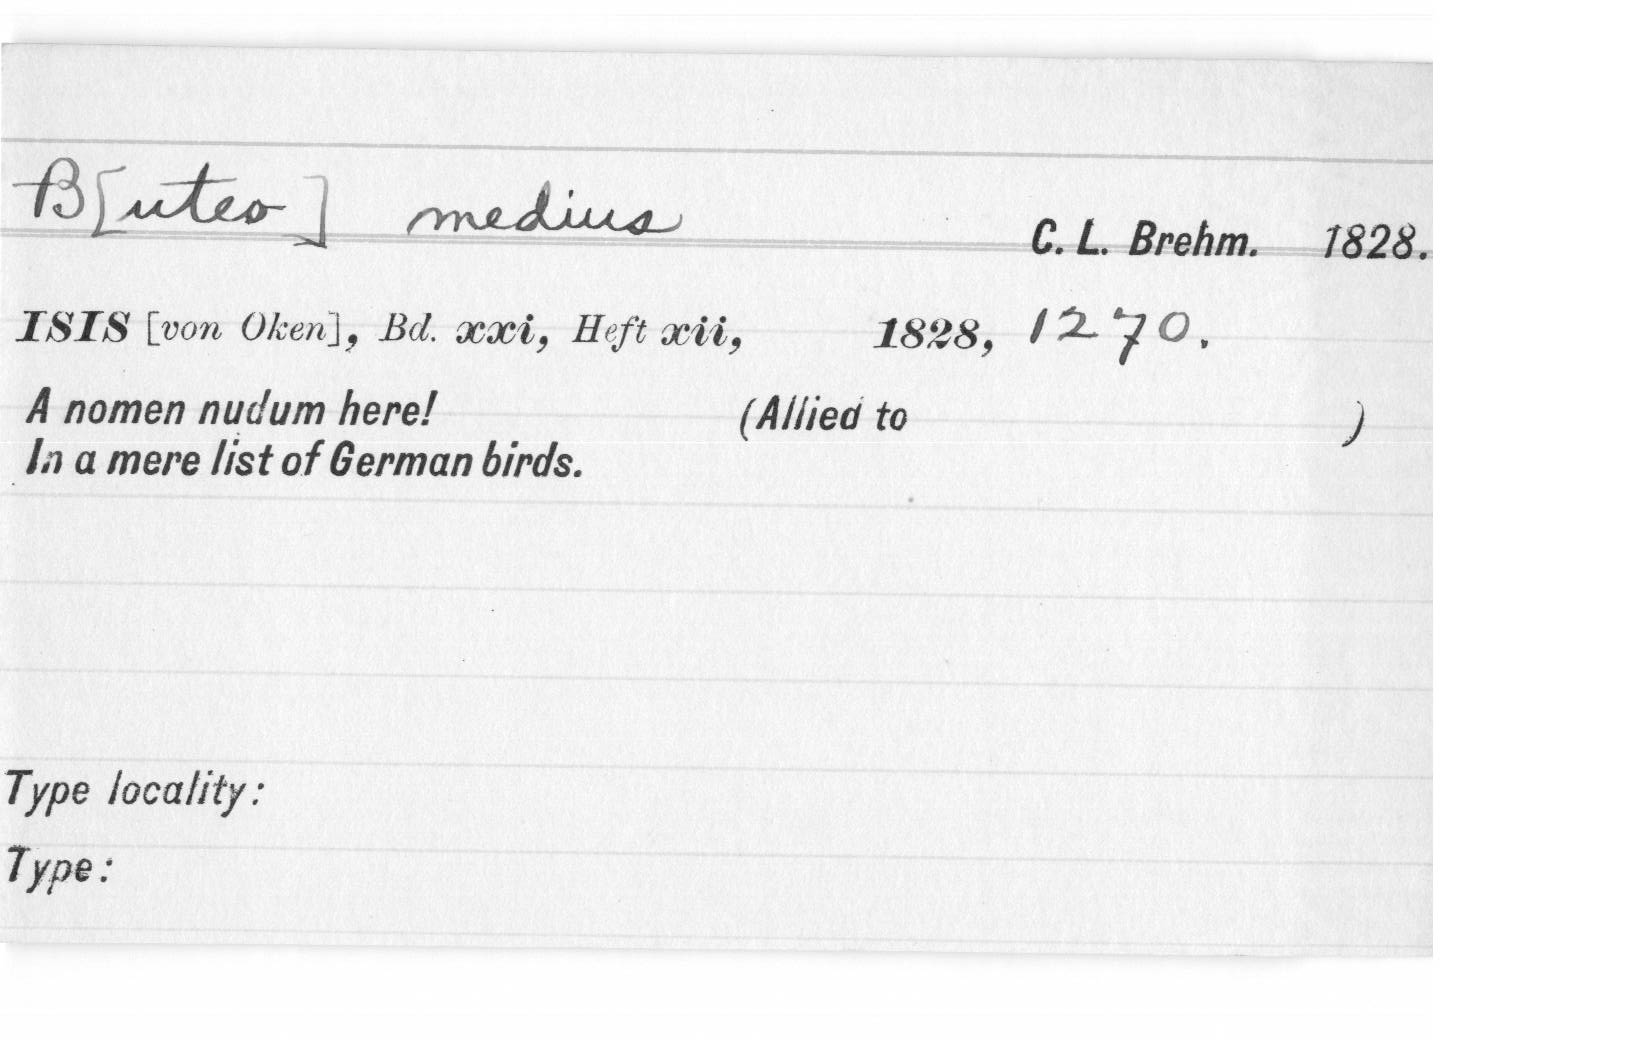 B[uteo] medius C. L. Brehm. 1828.
ISIS [von Oken], Bd. xxi, Heft xii, 1828, 1270.
A nomen nudum here! (Allied to )
In a mere list of German birds.
Type locality:
Type: